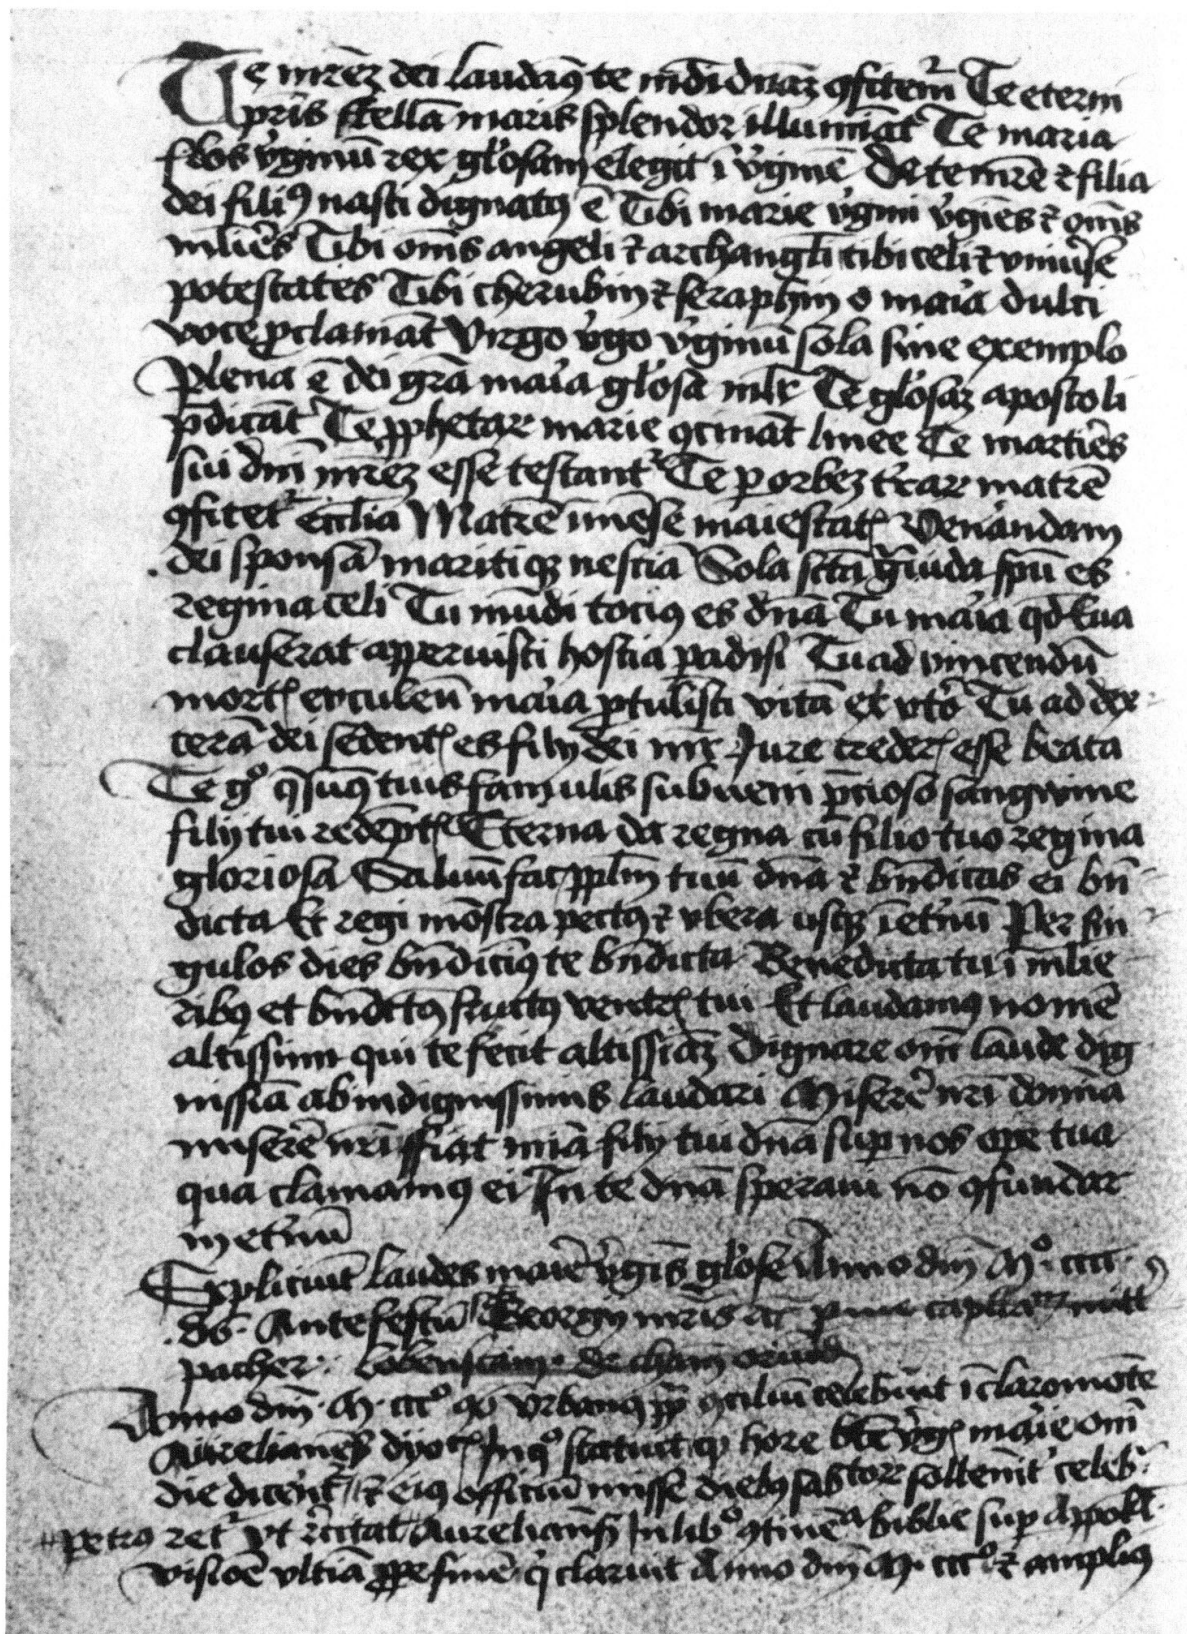 Te mrēz dei laudam9 te mūdi dnāz ꝯfitem̃ Te eterni
pr̄is stellā maris splendor illuminat Te maria
flos v̓ginū rex gl̓osam elegit ī v̓ginē De te mr̄e ⁊ filia
dei fili9 nasci dignat9 ē Tibi marie v̓gini v̓gīes ⁊ om̄s
ml̓ieres Tibi om̄s angeli ⁊ archangl̓i tibi celi ⁊ vniu̓se
potestates Tibi cherubin ⁊ seraphin o mar̓ia dulci
voce ꝓclamāt Virgo v̓go v̓ginū sola sine exemplo
Plena ē dei grā mar̓ia gl̓osa ml̓r Te gl̓osaz apostoli
p̄dicāt Te ꝓphetaꝝ marie ꝯcināt linee Te martires
sui dn̄i mr̄ez esse testant̃ Te per orbez t̓raꝝ matrē
ꝯfitet̃ Eccl̓ia Matrē īmēse maiestat̄ Ven̓andam
dei sponsā maritiqꝫ nesciā Sola sctā g̓uida spū es
regina celi Tu mūdi toci9 es dn̄a Tu mar̓ia qd̄ Eua
clauserat apperuisti hostia padisi Tu ad vincendū
mort̄ eculeū mar̓ia ꝓtulisti vitā ex vt̓o Tu ad dex
terā dei sedent̄ es filij dei mr̄ Jure creder̄ esse beata
Te g̊ q̄sum9 tuis famulis subueni p̄cioso sangwine
filij tui redēpt̄ Eterna da regna cū filio tuo regina
gloriosa Saluū fac ppl̄m tuū dn̄a ⁊ bn̄dicas ei bn̄
dicta Et regi mōstra pect9 ⁊ vbera vsqꝫ ī et̓nū Per sin
gulos dies bn̄dicim9 te bn̄dicta Benedicta tu ī mlie
rib9 et bn̄dict9 fruct9 ventr̄ tui Et laudam9 nomē
altissimi qui te fecit altissiāz Dignare om̄i laude dig
nissiā ab indignissimis laudari Miserē nr̄i domīa
miserē nr̄i ffiat mīa filij tui dn̄a sup nos ope tua
qua clamam9 ei In te dn̄a speraui nō ꝯfundar
in et̓nū
Expliciūt laudes mar̓ie v̓gīs gl̓ose Anno dn̄i M̊ · cccc ·
86 · Ante festū Georgij mr̄is
pacher · de cham
Anno dn̄i · M · ccc̊ Vrban9 pp ꝯciliū celebrāt ī claromōte
statuit qꝫ hore bt̄e v̓gīs mar̓ie om̄i
die dicent̃ ⁊ ei9 officiū misse dieb9 sollenit̓ celeb̓
petr9 vt recitat Aurelian̄ In lib̊ biblie sup
visiōe vltiā ꝓpe finē q̓ claruit Anno dn̄i M · ccc̊ ⁊ ampli9